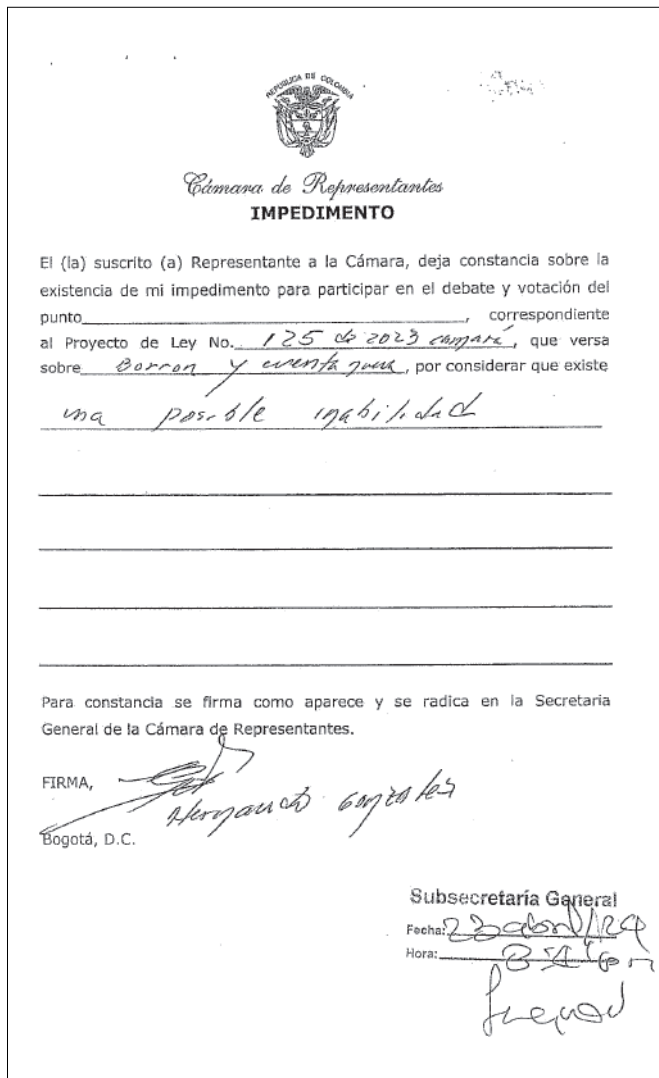 REPUBLICA DE COLOMBIA
Cámara de Representantes
IMPEDIMENTO
El (la) suscrito (a) Representante a la Cámara, deja constancia sobre la
existencia de mi impedimento para participar en el debate y votación del
punto, correspondiente
al Proyecto de Ley No. 125 de 2023 camara, que versa
sobre Borron y cuenta nueva, por considerar que existe
una posible inabilidad
Para constancia se firma como aparece y se radica en la Secretaria
General de la Cámara de Representantes.
FIRMA,
Hernando Gonzalez
Bogotá, D.C.
Subsecretaría General
Fecha: 23 abril/24
Hora: